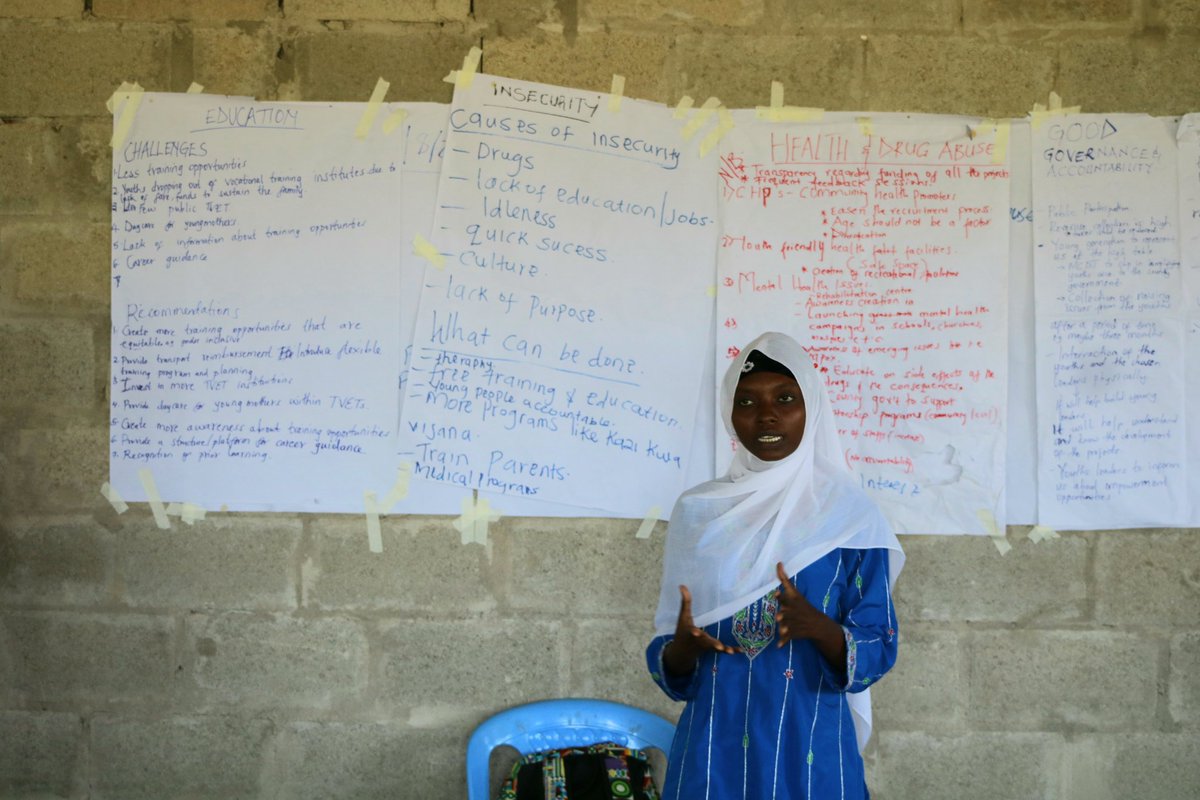 EDUCATION
CHALLENGES
1. Less training opportunities
2. Youths dropping out of vocational training institutes due to
lack of fare, funds to sustain the family
3. Few public TVET
4. Daycare for young mothers
5. Lack of information about training opportunities
6. Career guidance
Recommendations
1. Create more training opportunities that are
equitable, inclusive
2. Provide transport reimbursement / Introduce flexible
training program and planning
3. Invest in more TVET institutions
4. Provide daycare for young mothers within TVETs.
5. Create more awareness about training opportunities
6. Provide a structure/platform for career guidance
7. Recognition of prior learning.
INSECURITY
Causes of insecurity
- Drugs
- lack of education/jobs.
- Idleness
- quick sucess.
- culture.
- lack of purpose.
What can be done.
- theraphy
- Free training & education.
- Young people accountable.
- More programs like Kazi Kwa
vijana.
- Train Parents.
Medical Programs
HEALTH & DRUG ABUSE
NB * Transparency regarding funding of all the projects
* Frequent feedback sessions.
1) CHPs - Community health Promoters
* Easen the recruitment process
* Age should not be a factor
2) Youth friendly health facilities.
(Safe Space)
* creation of recreational facilities
3) Mental Health Issues.
- Rehabilitation centre
- Awareness creation in
- Launching mental health
campaigns in schools, churches,
mosques e.t.c
awareness of emerging issues
* Educate on side effects of the
drugs & the consequences.
County gov't to support
programs (community level)
(No accountability)
GOOD
GOVERNANCE &
ACCOUNTABILITY
- Public Participation
us at the high table
government
- Collection of
issues from the
after a period of
maybe three months
- Interaction of the
youths and the chosen
leaders physically.
It will help build young
It will help understand
and know the development
of the projects
- Youths leaders to inform
us about empowerment
opportunities